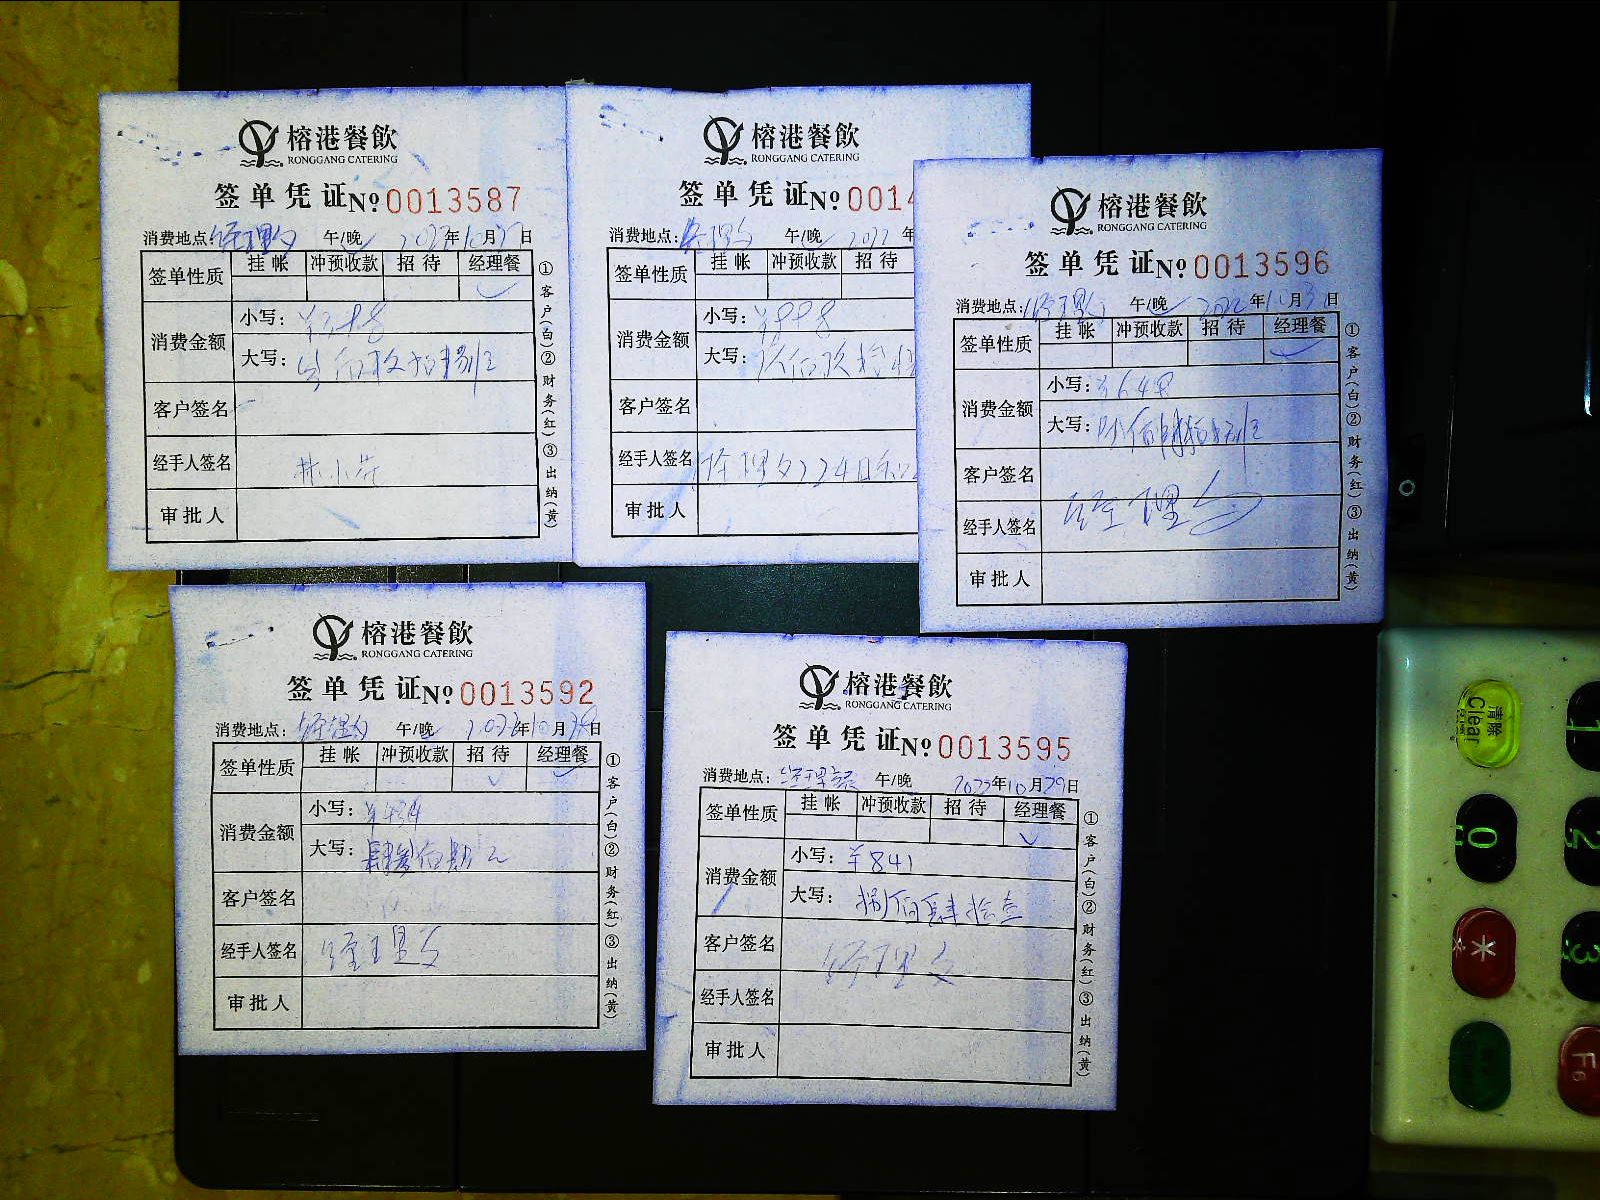 榕港餐飲
RONGGANG CATERING
签单凭证 № 0013587
消费地点: 经理 午/晚 年10月 日
签单性质 挂帐 冲预收款 招待 经理餐
消费金额 小写:
大写:
客户签名
经手人签名
审批人
①客户(白)②财务(红)③出纳(黄)
榕港餐飲
RONGGANG CATERING
签单凭证 № 0014
消费地点: 经理 午/晚 2022 年
签单性质 挂帐 冲预收款 招待
消费金额 小写:
大写:
客户签名
经手人签名 经理
审批人
榕港餐飲
RONGGANG CATERING
签单凭证 № 0013596
消费地点: 经理 午/晚 2022年10月31日
签单性质 挂帐 冲预收款 招待 经理餐
消费金额 小写: ¥648
大写: 陆佰肆拾捌元
客户签名
经手人签名 经理
审批人
①客户(白)②财务(红)③出纳(黄)
榕港餐飲
RONGGANG CATERING
签单凭证 № 0013592
消费地点: 经理 午/晚 2022年10月 日
签单性质 挂帐 冲预收款 招待 经理餐
消费金额 小写: ¥434
大写:
客户签名
经手人签名 经理
审批人
①客户(白)②财务(红)③出纳(黄)
榕港餐飲
RONGGANG CATERING
签单凭证 № 0013595
消费地点: 经理餐 午/晚 2022年10月29日
签单性质 挂帐 冲预收款 招待 经理餐
消费金额 小写: ¥841
大写: 捌佰肆拾壹
客户签名 经理
经手人签名
审批人
①客户(白)②财务(红)③出纳(黄)
清除
Clear
1
0
2
*
3
F6